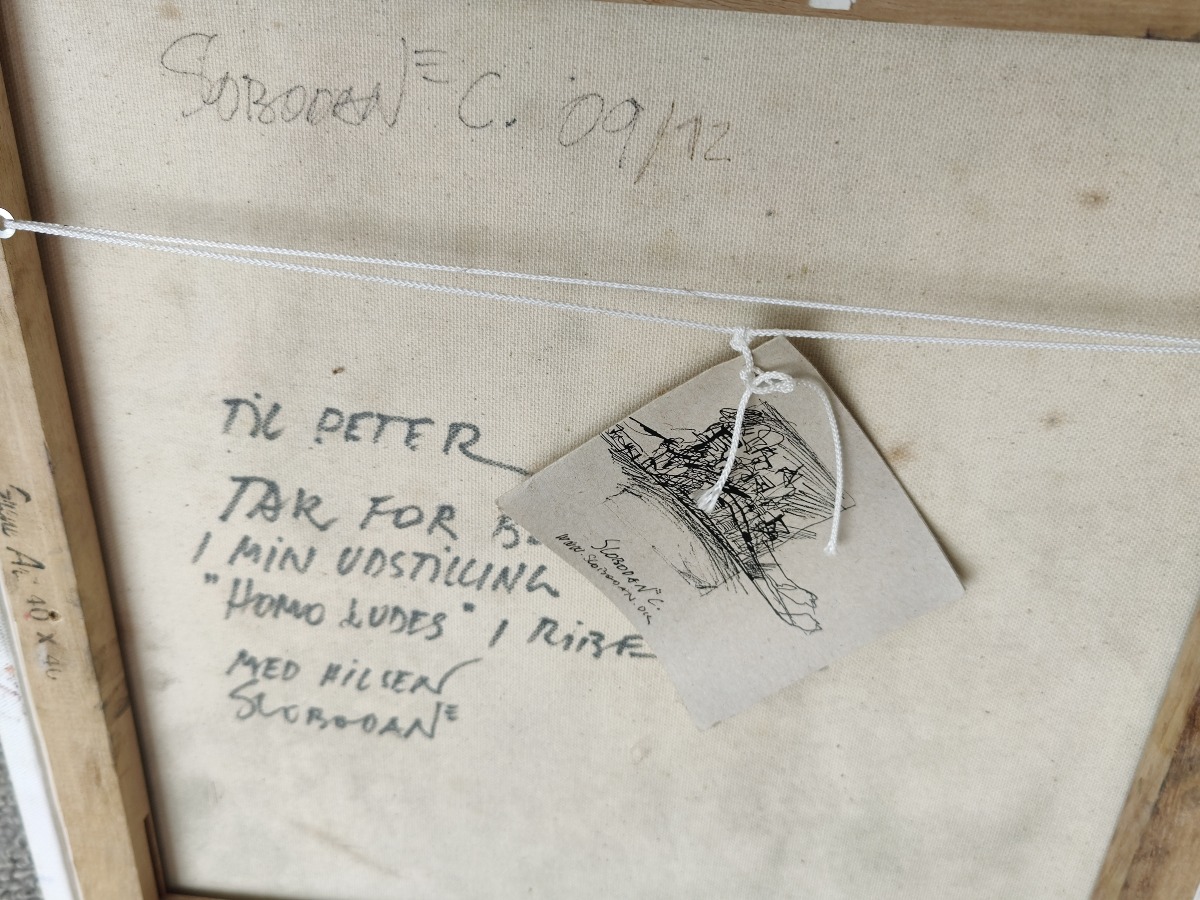 SLOBODAN C. 09/12
TIL PETER
TAK FOR
I MIN UDSTILLING
"HOMO LUDES" I RIBE
MED HILSEN
SLOBODAN
SLOBODAN C.
WWW.SLOBODAN.DK
40 x 40